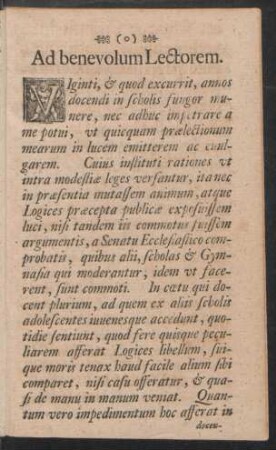 (0)
Ad benevolum Lectorem.
VIginti, & quod excurrit, annos
docendi in scholis fungor mu-
nere, nec adhuc impetrare a
me potui, vt quicquam prælectionum
mearum in lucem emitterem ac evul-
garem. Cuius instituti rationes vt
intra modestiæ leges versantur, ita nec
in præsentia mutassem animum, atque
Logices præcepta publicæ exposuissem
luci, nisi tandem iis commotus fuissem
argumentis, a Senatu Ecclesiastico com-
probatis, quibus alii, scholas & Gym-
nasia qui moderantur, idem vt face-
rent, sunt commoti. In cætu qui do-
cent plurium, ad quem ex aliis scholis
adolescentes iuuenesque accedunt, quo-
tidie sentiunt, quod fere quisque pecu-
liarem afferat Logices libellum, sui-
que moris tenax haud facile alium sibi
comparet, nisi casu offeratur, & qua-
si de manu in manum veniat. Quan-
tum vero impedimentum hoc afferat in
docen-